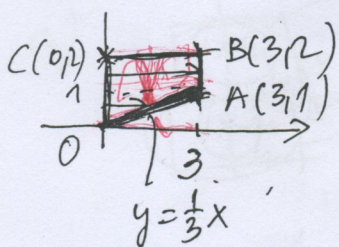 C(0,2)
B(3,2)
1
A(3,1)
0
3
y = 1/3 x